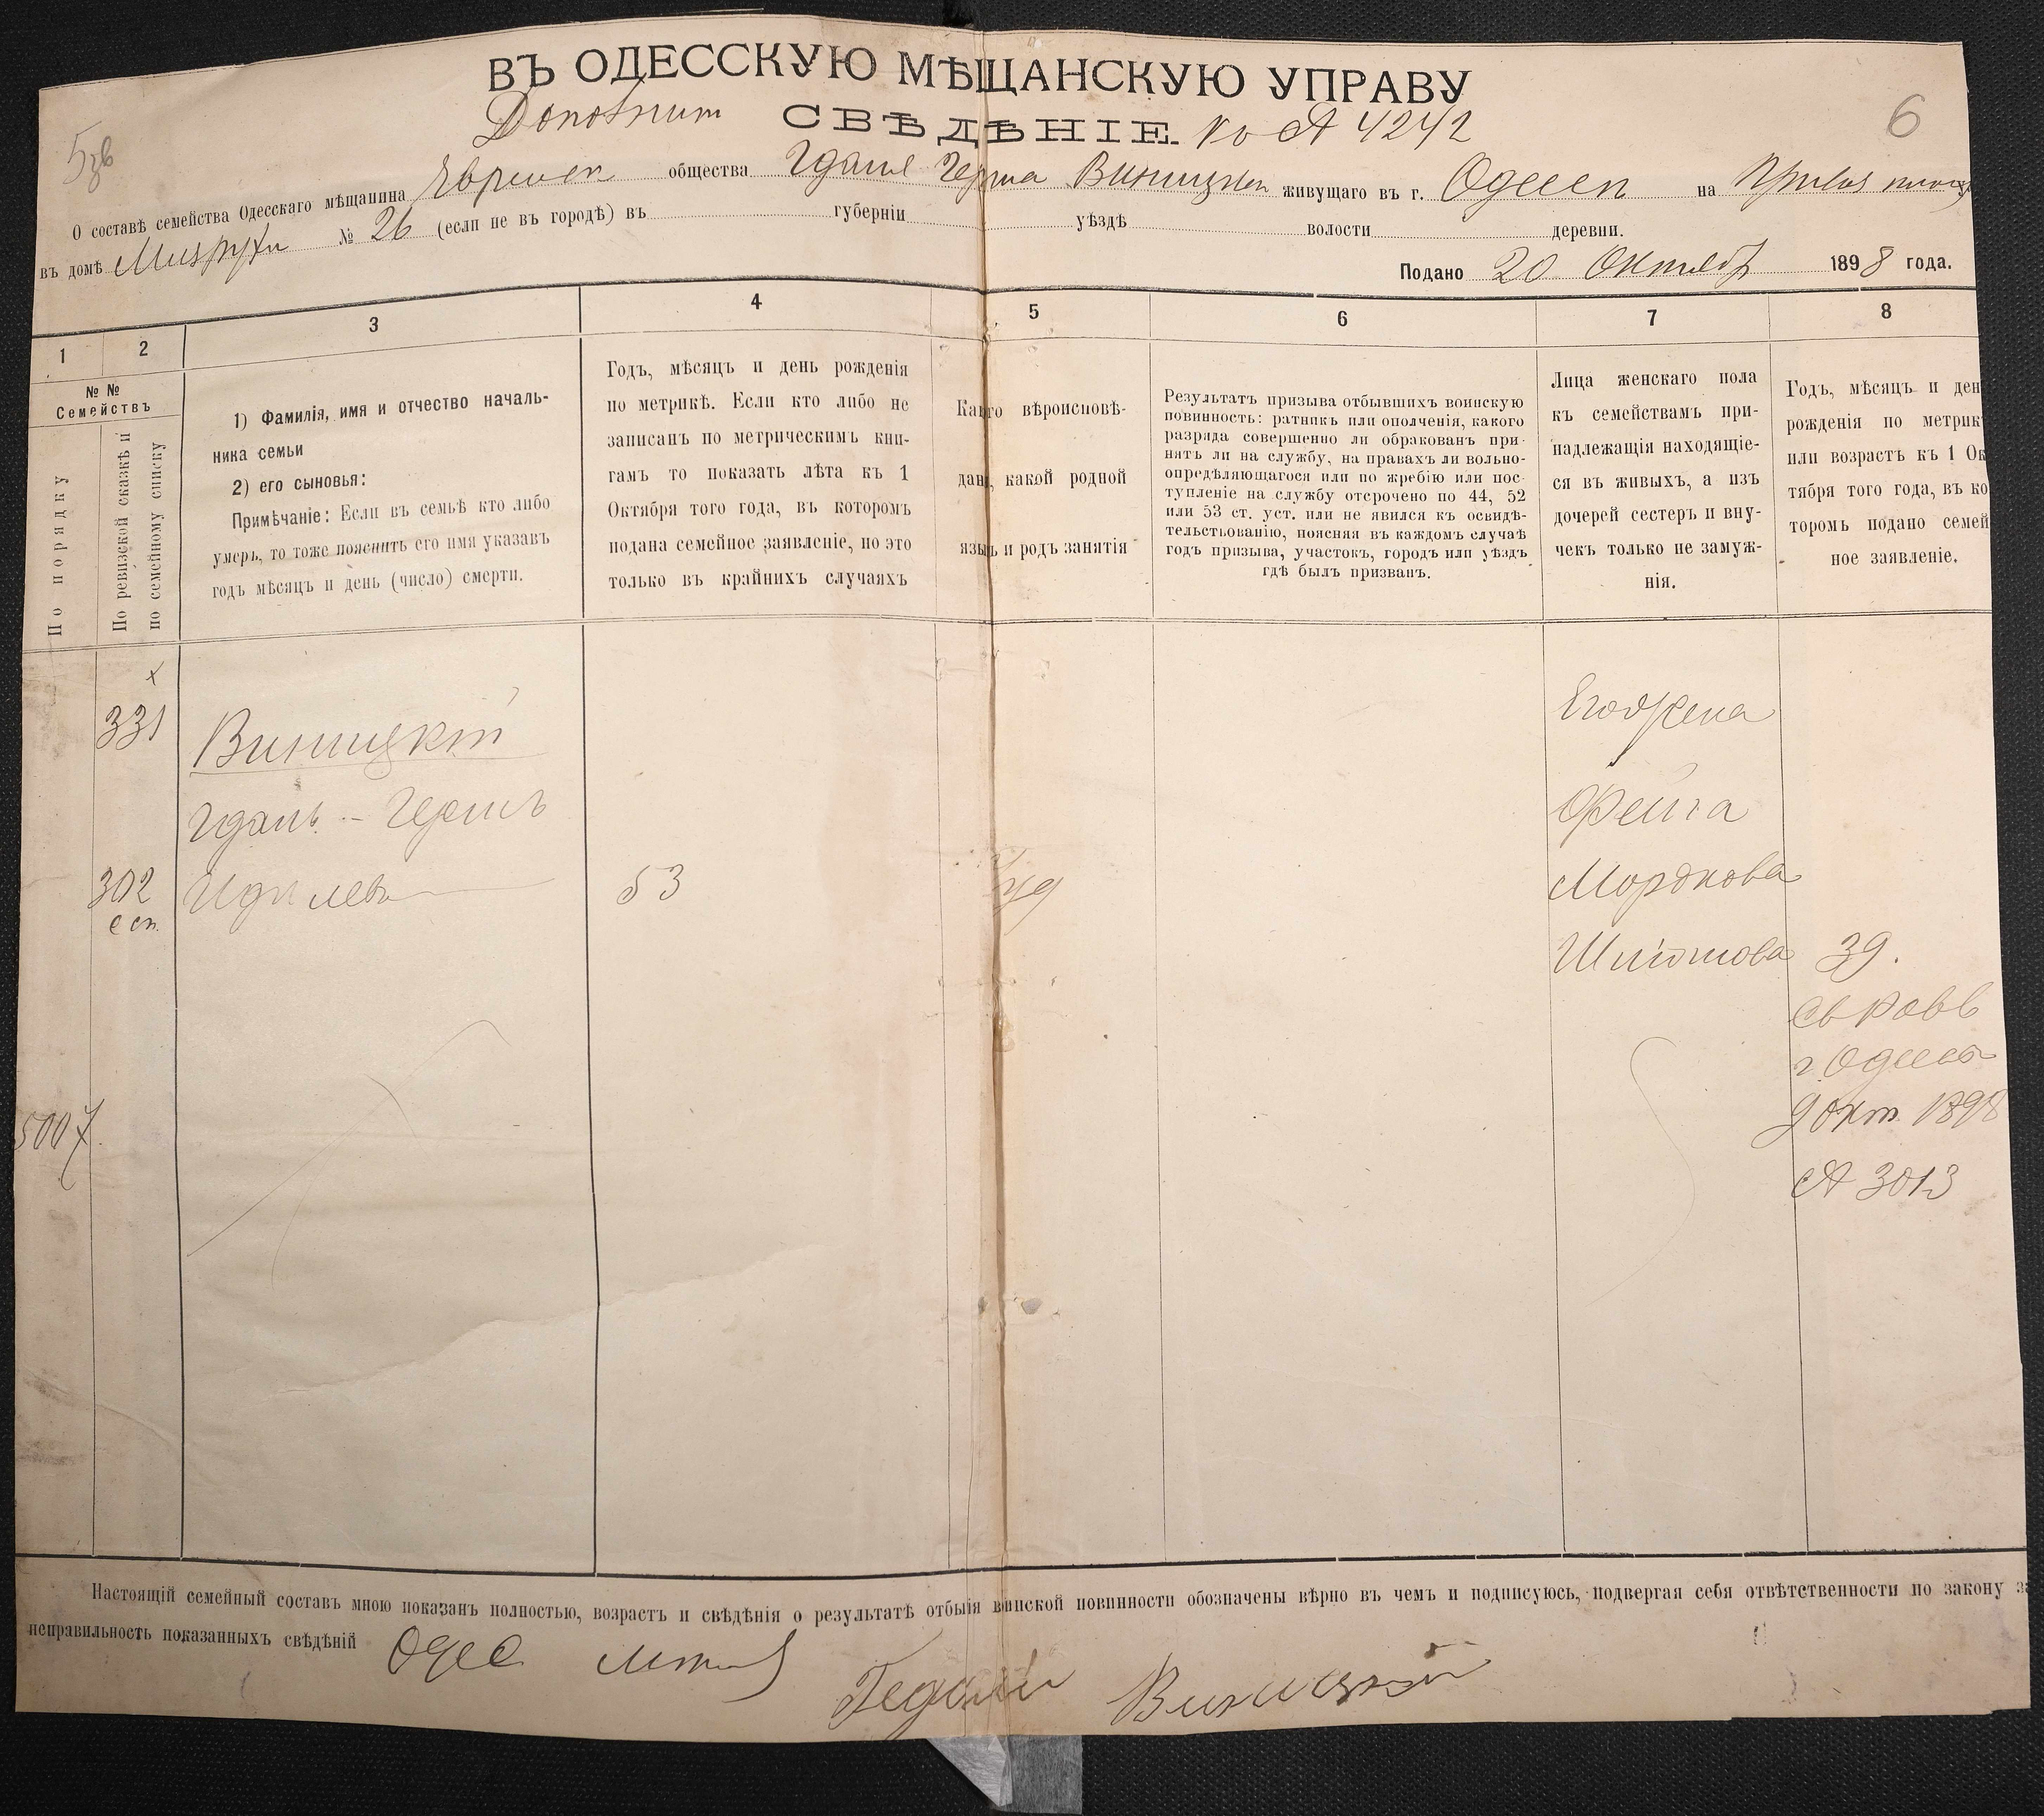 ВЪ ОДЕССКУЮ МѢЩАНСКУЮ УПРАВУ
СВѢДѢНІЕ. № 4242
6
О составѣ семейства Одесскаго мѣщанина Еврейск общества Гдаля Герша Виницкій живущаго въ г. Одессѣ на
въ домѣ № 26 (если не въ городѣ) въ губерніи уѣздѣ волости деревни.
Подано 20 Октября 1898 года.
1 2 3 4 5 6 7 8
№ №
Семействъ
По порядку
По ревизской сказкѣ и
по семейному списку
1) Фамилія, имя и отчество началь-
ника семьи
2) его сыновья:
Примѣчаніе: Если въ семьѣ кто либо
умеръ, то тоже пояснить его имя указавъ
годъ мѣсяцъ и день (число) смерти.
Годъ, мѣсяцъ и день рожденія
по метрикѣ. Если кто либо не
записанъ по метрическимъ кни-
гамъ то показать лѣта къ 1
Октября того года, въ которомъ
подана семейное заявленіе, но это
только въ крайнихъ случаяхъ
Какого вѣроисповѣ-
данія, какой родной
языкъ и родъ занятія
Результатъ призыва отбывшихъ воинскую
повинность: ратникъ или ополченія, какого
разряда совершенно ли обракованъ при-
нятъ ли на службу, на правахъ ли вольно-
опредѣляющагося или по жребію или пос-
тупленіе на службу отсрочено по 44, 52
или 53 ст. уст. или не явился къ освидѣ-
тельствованію, поясняя въ каждомъ случаѣ
годъ призыва, участокъ, городъ или уѣздъ
гдѣ былъ призванъ.
Лица женскаго пола
къ семействамъ при-
надлежащія находящіе-
ся въ живыхъ, а изъ
дочерей сестеръ и вну-
чекъ только не замуж-
нія.
Годъ, мѣсяцъ и ден
рожденія по метрик
или возрастъ къ 1 Ок
тября того года, въ ко
торомъ подано семей
ное заявленіе.
х
331
Виницкій
Гдаль - Гершъ
302
53
Іуд
Его жена
Фейга
Мордкова
39.
г Одессы
9 окт. 1898
№ 3013
5007
Настоящій семейный составъ мною показанъ полностью, возрастъ и свѣдѣнія о результатѣ отбытія воинской повинности обозначены вѣрно въ чемъ и подписуюсь, подвергая себя отвѣтственности по закону за
неправильность показанныхъ свѣдѣній Одес
Виницкій